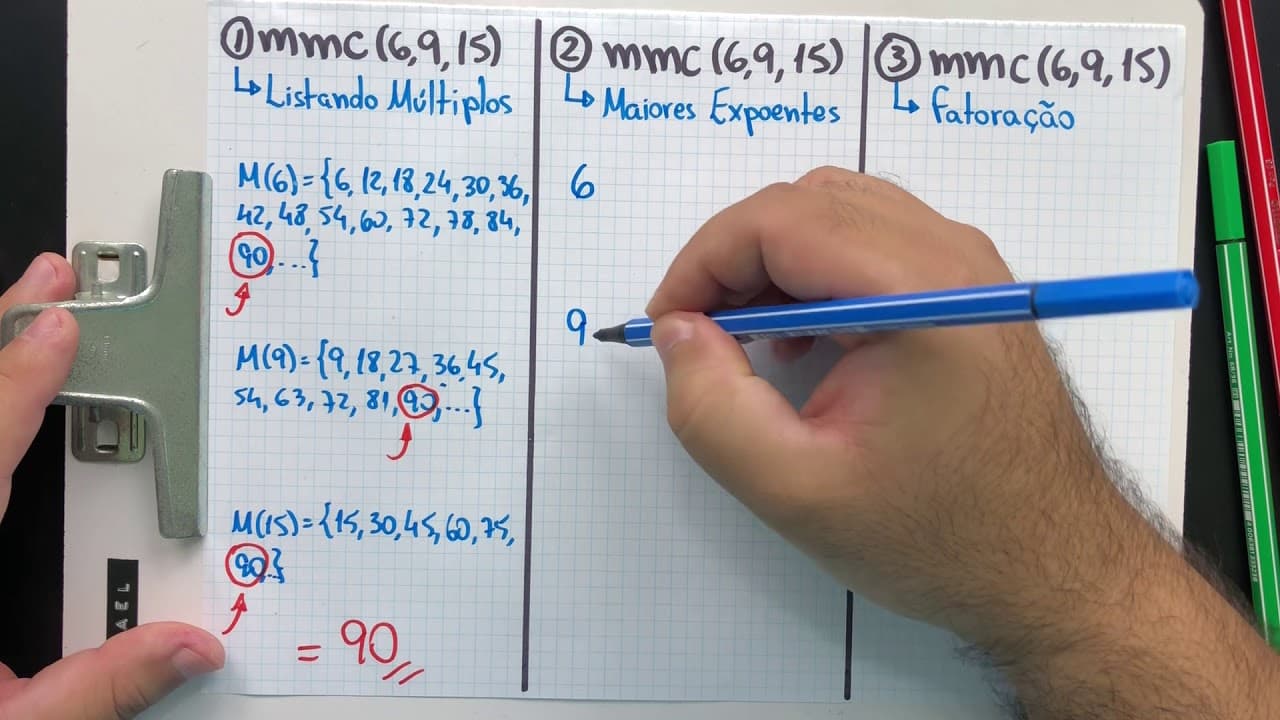 ① mmc (6,9,15)
↳ Listando Múltiplos
M(6)={6,12,18,24,30,36,
42,48,54,60,72,78,84,
90,...}
M(9)={9,18,27,36,45,
54,63,72,81,90,...}
M(15)={15,30,45,60,75,
90...}
= 90
② mmc (6,9,15)
↳ Maiores Expoentes
6
9
③ mmc (6,9,15)
↳ Fatoração
AEL